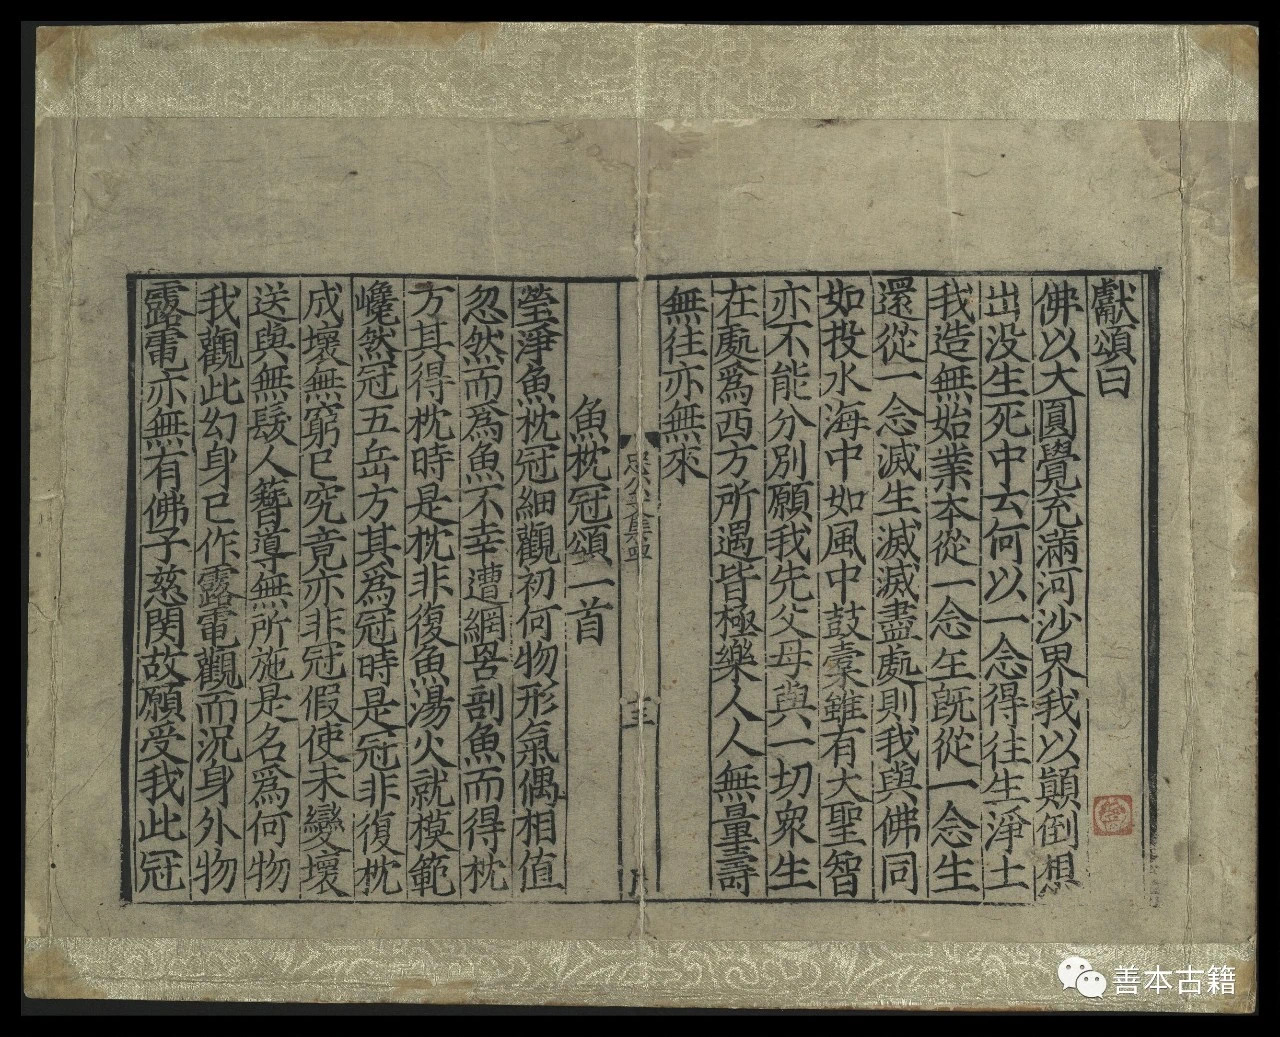 獻頌曰
佛以大圓覺充滿河沙界我以顛倒想
出没生死中云何以一念得往生淨土
我造無始業本從一念生既從一念生
還從一念滅生滅滅盡處則我與佛同
如投水海中如風中鼓橐雖有大聖智
亦不能分別願我先父母與一切衆生
在處爲西方所遇皆極樂人人無量壽
無往亦無來
忠公文集四
魚枕冠頌一首
瑩淨魚枕冠細觀初何物形氣偶相值
忽然而爲魚不幸遭網罟剖魚而得枕
方其得枕時是枕非復魚湯火就模範
巉然冠五岳方其爲冠時是冠非復枕
成壞無窮已究竟亦非冠假使未變壞
送與無髮人簪導無所施是名爲何物
我觀此幻身已作露電觀而況身外物
露電亦無有佛子慈閔故願受我此冠
善本古籍